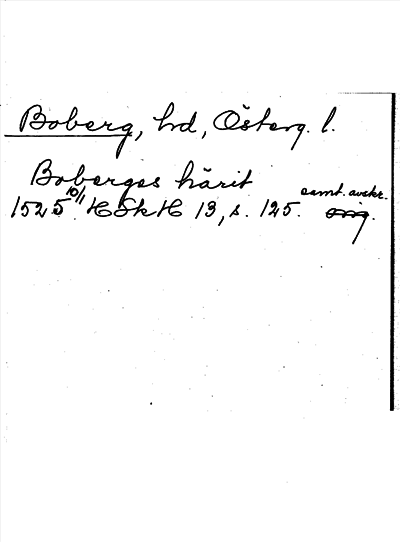 Boberg, hd, Österg. l.
Boberges härit
1525 10/1 HSkH 13, s. 125. orig. samt. avskr.